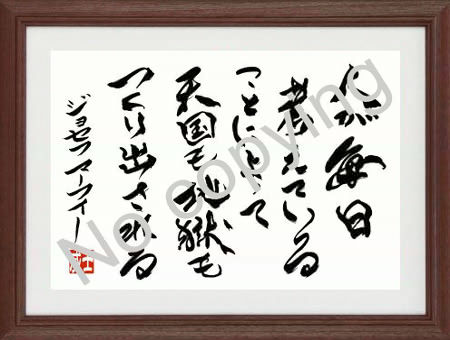 人が毎日
考えている
ことによって
天国も地獄も
つくり出される
ジョセフ マーフィー
No copying